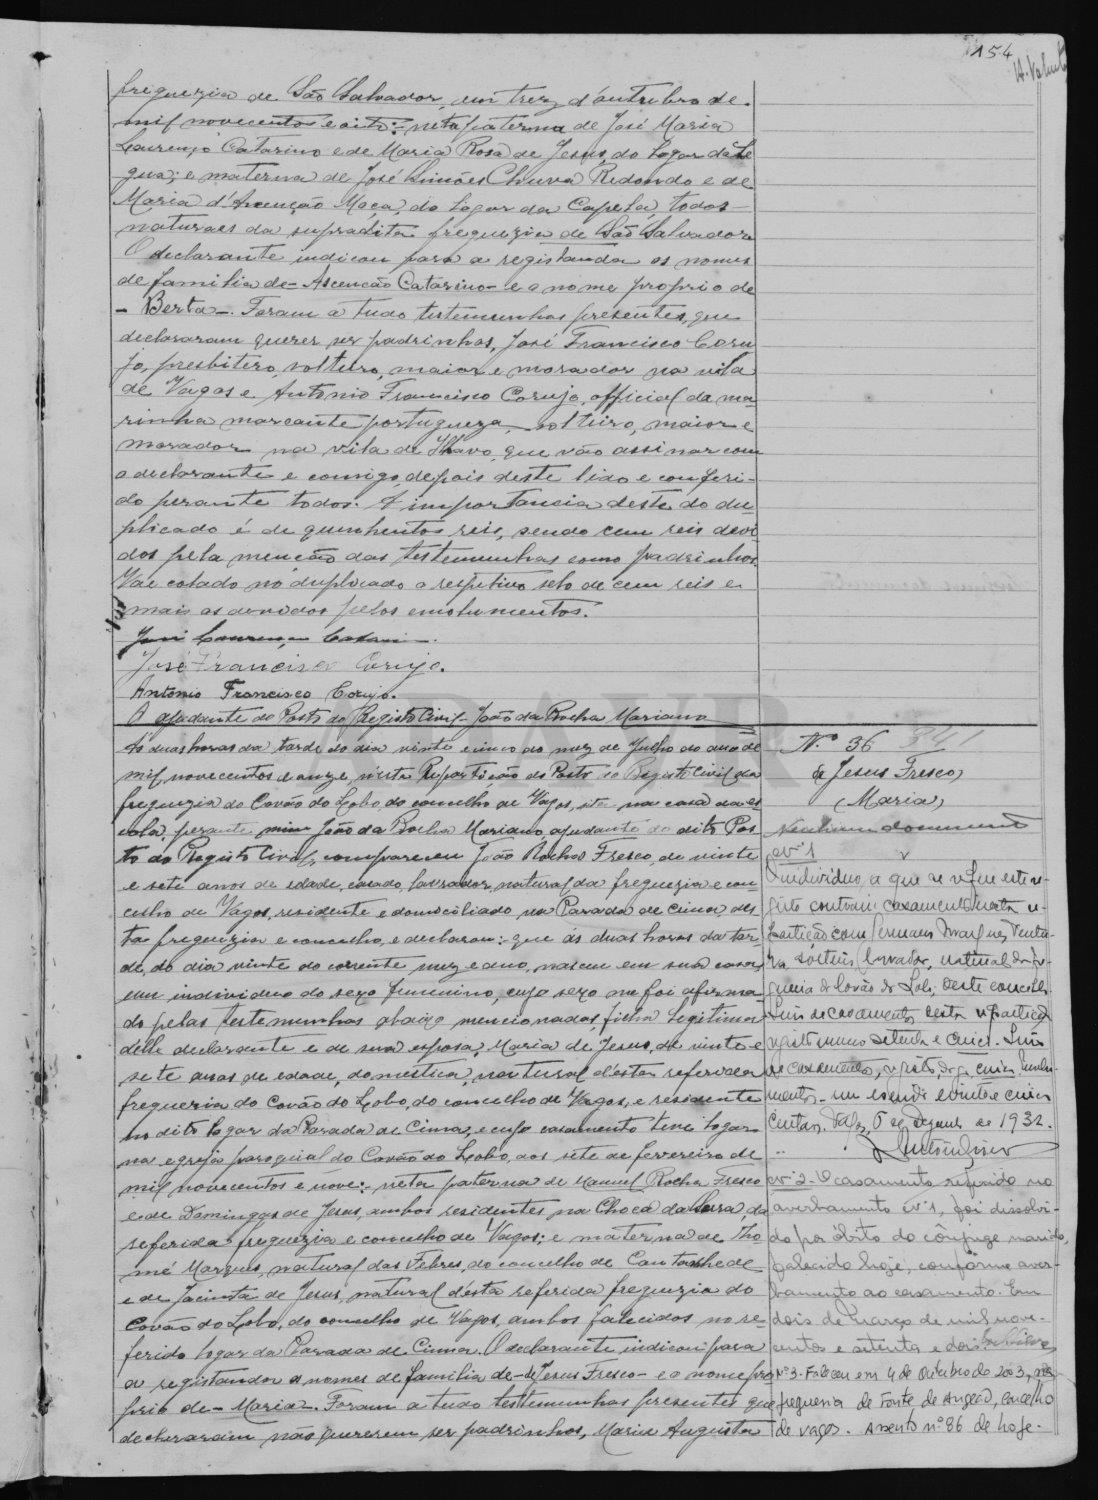 154
freguezia de São Salvador, em trez d'outubro de
mil novecentos e oito:- neta paterna de José Maria
Lourenço Catarino e de Maria Rosa de Jesus, do logar da Le
gua; e materna de José Simões Chuva Redondo e de
Maria d'Ascenção Moça, do logar da Capela, todos
naturaes da supradita freguezia de São Salvador.
O declarante indicou para a registanda os nomes
de familia de - Ascenção Catarino - e o nome proprio de
- Berta -. Foram a tudo testemunhas presentes, que
declararam querer ser padrinhos, José Francisco Coru
jo, presbitero, solteiro, maior e morador na vila
de Vagos e Antonio Francisco Corujo, official da ma-
rinha marcante portugueza, solteiro, maior e
morador na vila de Ilhavo, que vão assinar com
o declarante e comigo, depois deste lido e conferi-
do perante todos. A importancia deste e do du-
plicado é de quinhentos reis, sendo cem reis devi
dos pela menção das testemunhas como padrinhos.
Vae colado no duplicado o respetivo selo de cem reis e
mais os devidos pelos emolumentos.
José Lourenço Catarino.
José Francisco Corujo.
Antonio Francisco Corujo.
O ajudante do Posto do Registo Civil - João da Rocha Mariano
ADAVR
Ás duas horas da tarde do dia vinte e cinco do mez de Julho do ano de
mil novecentos e onze, n'esta Repartição do Posto do Registo Civil da
freguezia do Covão do Lobo, do concelho de Vagos, sito na casa da es
cola, perante mim João da Rocha Mariano, ajudante do dito Pos
to do Registo Civil, compareceu João Rocha Fresco, de vinte
e sete anos de edade, casado, lavrador, natural da freguezia e con-
celho de Vagos, residente e domociliado na Parada de Cima, des
ta freguezia e concelho, e declarou:- que ás duas horas da tar-
de, do dia vinte do corrente mez e ano, nasceu em sua casa,
um individuo do sexo femenino, cujo sexo me foi afirma-
do pelas testemunhas abaixo mencionadas, filha legitima
delle declarante e de sua esposa, Maria de Jesus, de vinte e
sete anos de edade, domestica, natural d'esta referida
freguezia do Covão do Lobo, do concelho de Vagos, e residente
no dito logar da Parada de Cima, e cujo casamento teve logar
na egreja paroquial do Covão do Lobo, aos sete de fevereiro de
mil novecentos e nove:- neta paterna de Manuel Rocha Fresco
e de Domingas de Jesus, ambos residentes na Choca da Loura, da
referida freguezia e concelho de Vagos; e materna de Tho
mé Marques, natural das Febres, do concelho de Cantanhede
e de Jacinta de Jesus, natural d'esta referida freguezia do
Covão do Lobo, do concelho de Vagos, ambos falecidos no re-
ferido logar da Parada de Cima. O declarante indicou para
a registanda os nomes de familia de - de Jesus Fresco - e o nome pro
prio de - Maria -. Foram a tudo testemunhas presentes que
declararam não quererem ser padrinhos, Maria Augusta
N.º 36 341
de Jesus Fresco,
(Maria)
Nenhum documento
nº 1
O individuo, a que se refere este re-
gisto contraiu casamento nesta re-
partição com Marques Ventu-
ra solteiro, lavrador, natural da fre-
guesia do Covão do Lobo, deste concelho.
casamento nesta repartição
registo numero setenta e cinco.
de casamento, registo,
mentos - um escudo e vinte e cinco
centavos. Vagos, 5 de Dezembro de 1932.
nº 2 - O casamento referido no
averbamento nº 1, foi dissolvi-
do por óbito do cônjuge marido,
falecido hoje, conforme aver-
bamento ao casamento. Em
dois de Março de mil nove-
centos e setenta e dois.
Nº 3 - Faleceu em 4 de Outubro de 2003, na
freguesia de Fonte de Angeão, concelho
de Vagos. Assento nº 86 de hoje.